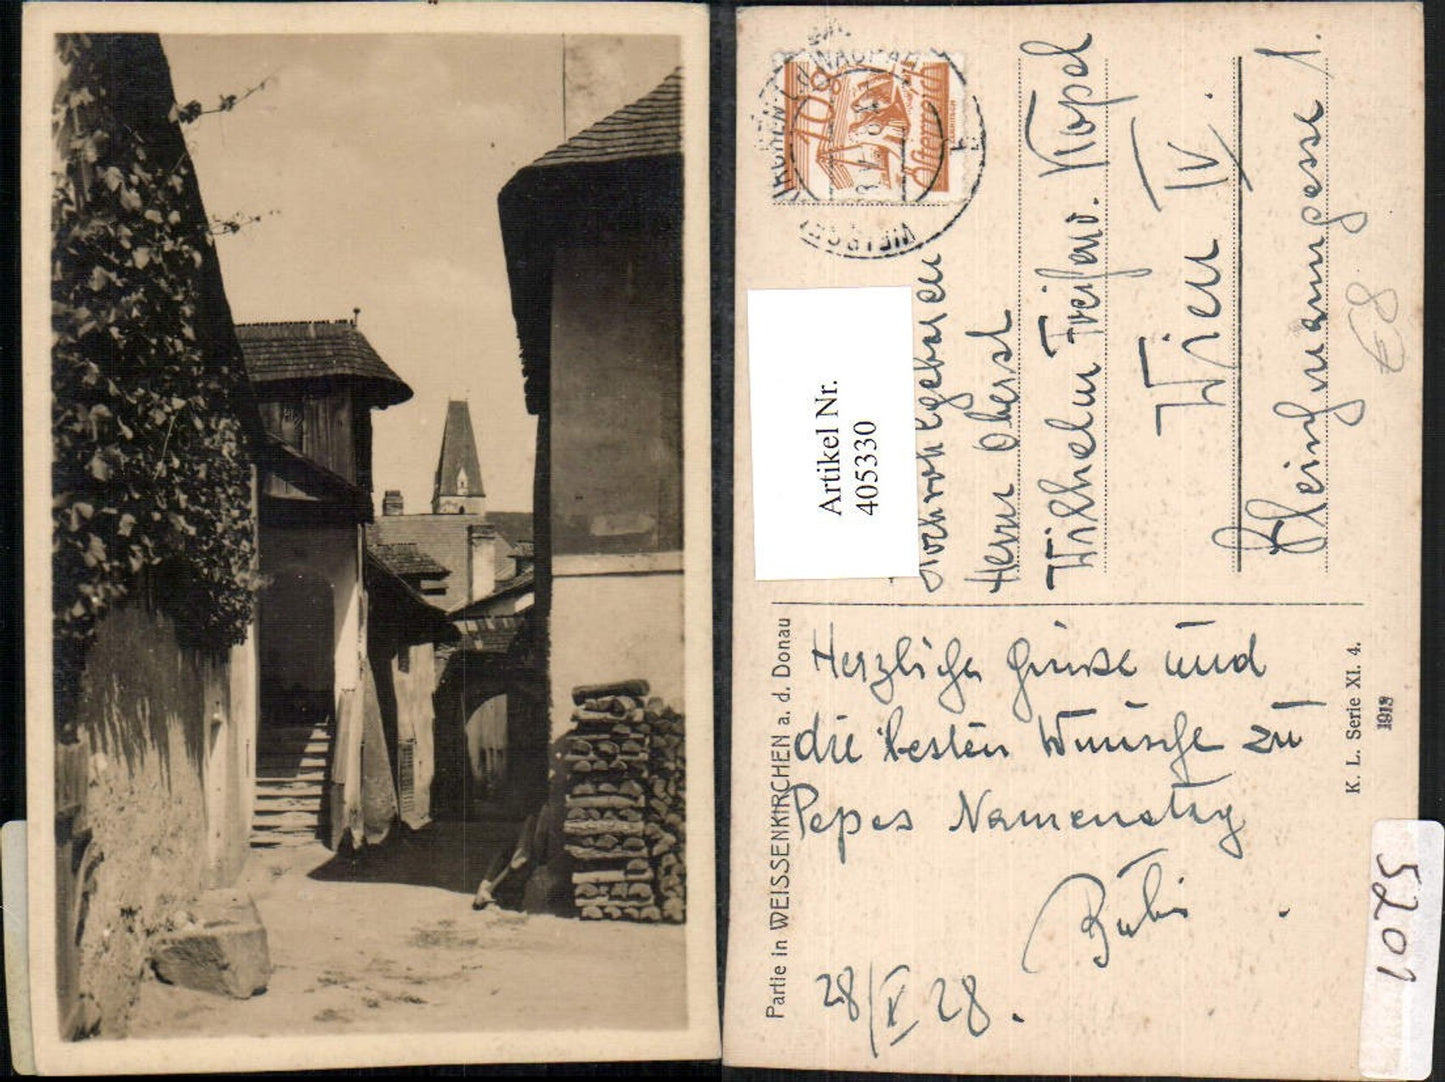 WEISSENKIRCHEN I. D. WACHAU
10 g
Österreich
Artikel Nr.
405330
Hochwohlgeboren
Herrn Oberst
Wilhelm Freiherr v. Klopel
Wien IV.
Kleinschmanngasse 1.
€8
Partie in WEISSENKIRCHEN a. d. Donau
Herzliche Grüße und
die besten Wünsche zu
Pepes Namenstag
Bubi
28/V 28.
K. L. Serie XI. 4.
1913
5201